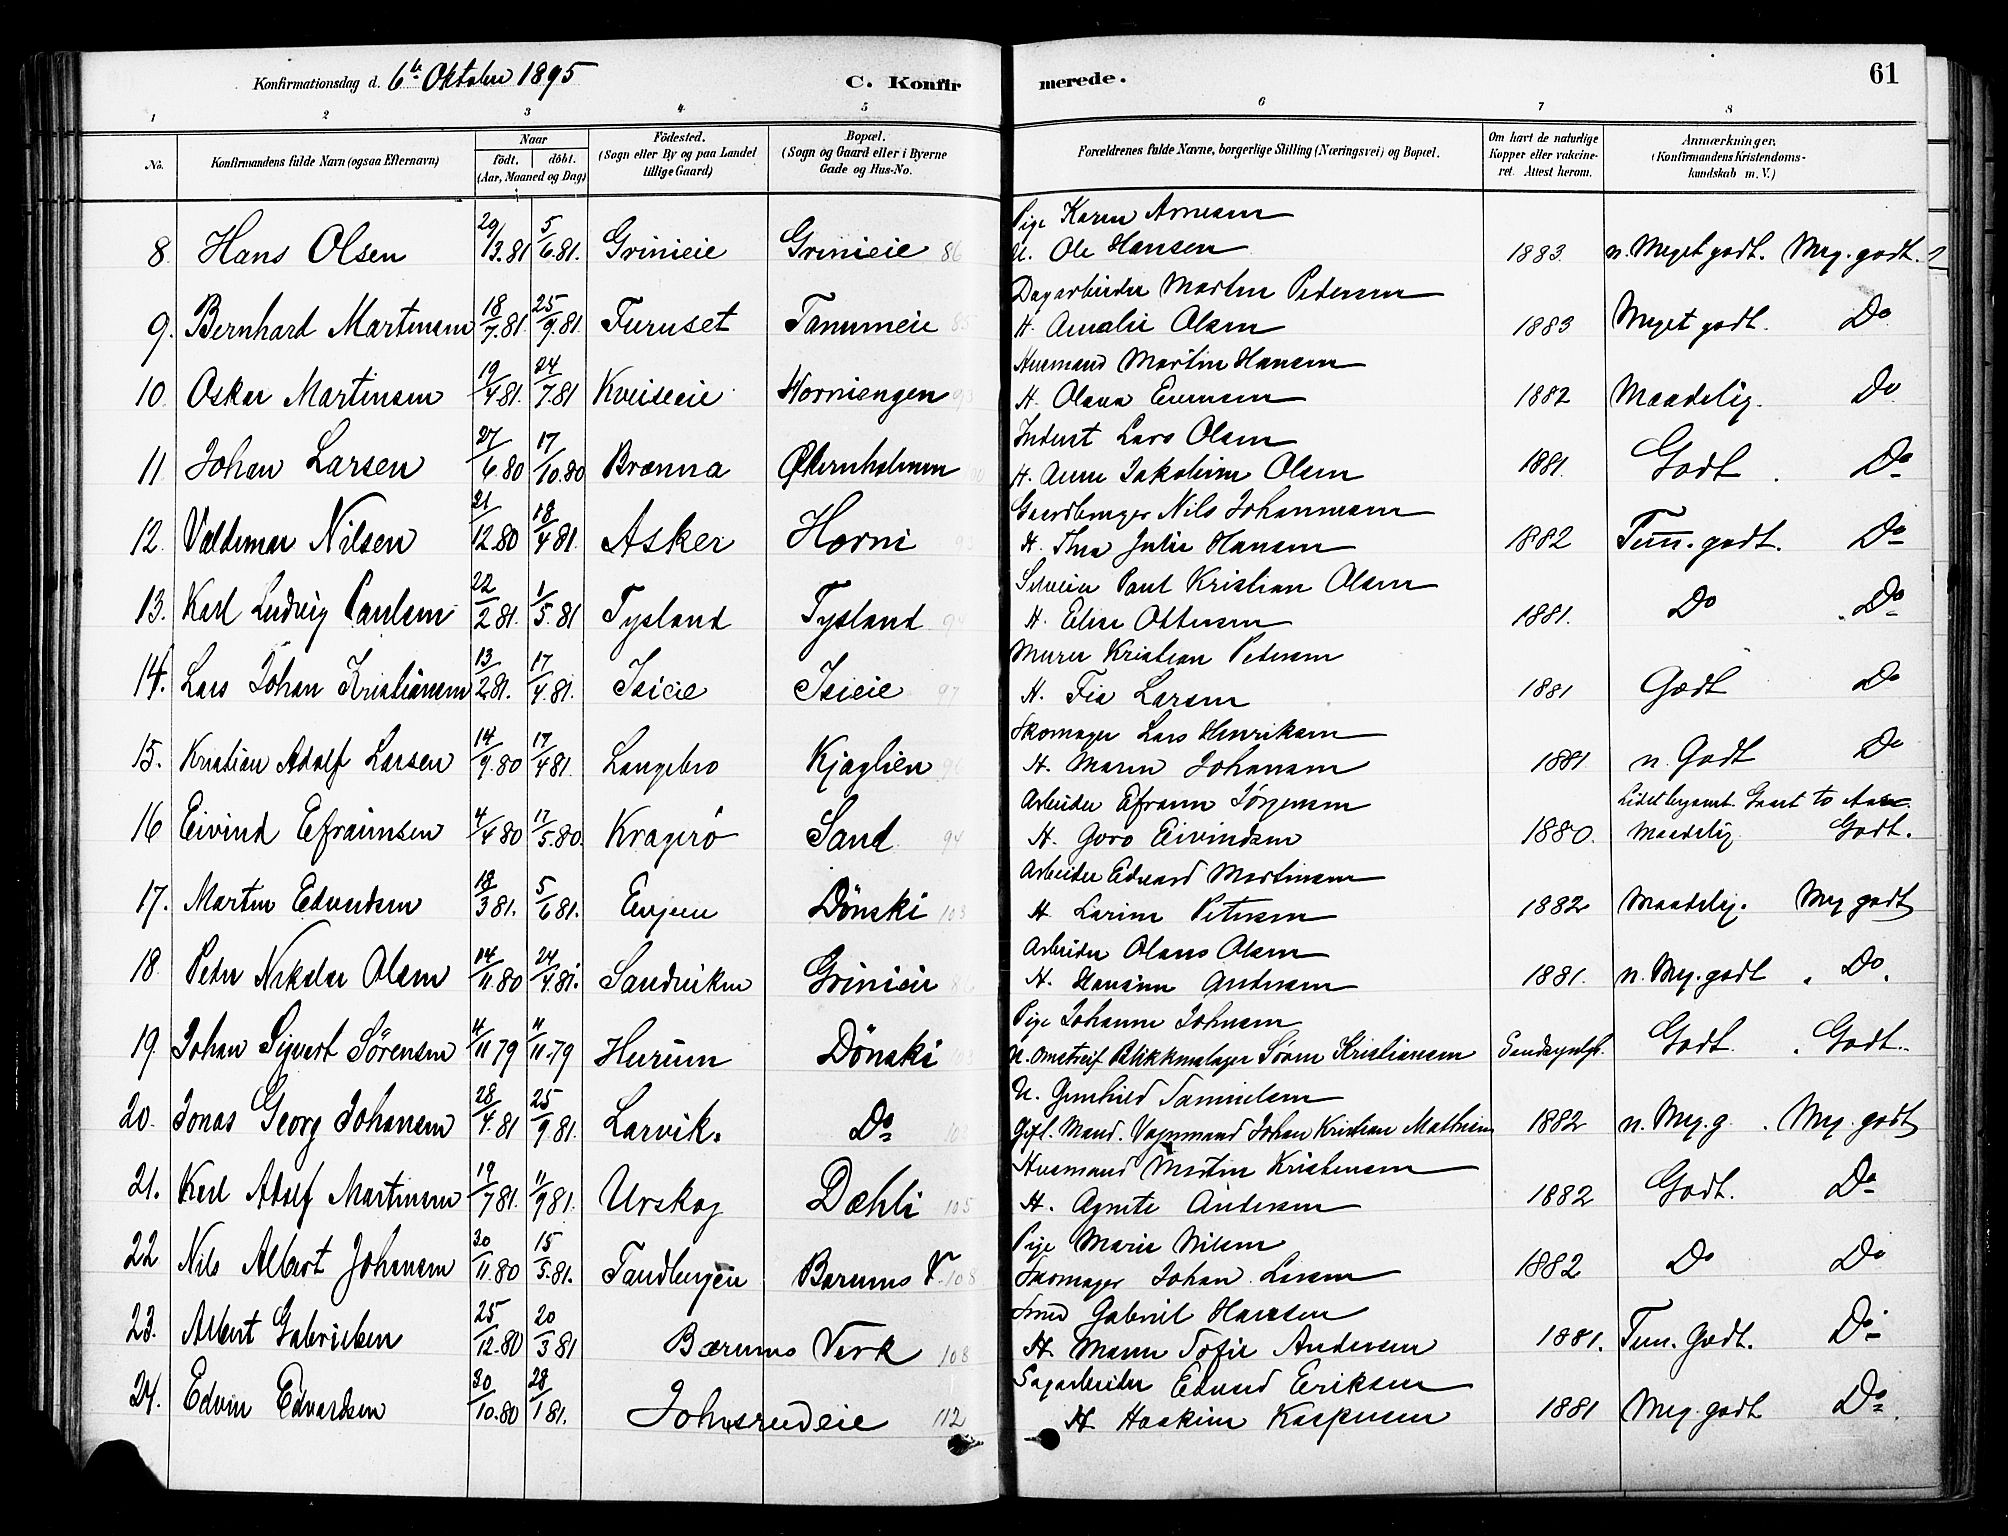 Konfirmationsdag d. 6te Oktober 1895
C. Konfir
merede.
61
1 2 3 4. 5 6 7 8
No. Konfirmandens fulde Navn (ogsaa Efternavn) Naar födt. döbt. (Aar, Maaned og Dag) Födested. (Sogn eller By og paa Landet tillige Gaard) Bopæl. (Sogn og Gaard eller i Byerne Gade og Hus-No. Forældrenes fulde Navne, borgerlige Stilling (Næringsvei) og Bopæl. Om havt de naturlige Kopper eller vakcineret. Attest herom. Anmærkninger, (Konfirmandens Kristendomskundskab m. V.)
Pige Karen Arnesen
8. Hans Olsen 29/3.81 5/6.81. Grinieie Grinieie 86 U. Ole Hansen 1883. n. Meget godt. Meg. godt.
Dagarbeider Martin Petersen
9. Bernhard Martinsen 18/7.81. 25/9.81. Furuset Tanumeie H. Amalie Olsen 1883 Meget godt. Do
Husmand Martin Hansen
10. Oskar Martinsen 19/4.81. 24/7.81 Kveiseeie Horniengen 93 H. Olava Evensen 1882 Maadelig. Do
Inderst Lars Olsen
11 Johan Larsen 27/6.80 17/10.80 Brænna Økernholmen H. Anne Jakobine Olsen 1881. Godt. Do
Gaardbruger Nils Johannesen
12. Valdemar Nilsen 21/12.80 18/4.81. Asker Horni 93 H. Thea Julie Hansen 1882 Tem. godt. Do
Selveier Paul Kristian Olsen
13. Karl Ludvig Paulsen 22/2.81. 1/5.81 Tysland Tysland 94 H. Elise Ottersen 1881. Do Do
Murer Kristian Petersen
14. Lars Johan Kristiansen 13/2.81. 17/4.81. Isieie Isieie 97 H. Fia Larsen 1881 Godt Do
Skomager Lars Henriksen
15. Kristian Adolf Larsen 14/9.80 17/4.81. Langebro Kjaglien 96 H. Maren Johansen 1881 n. Godt Do
Arbeider Efraim Jörgensen Lidet begavet. Gaaet to Aar.
16 Eivind Efraimsen 4/4.80 17/5.80. Kragerö Sand 94 H. Goro Eivindsen 1880. Maadelig Godt.
Arbeider Edvard Martinsen
17. Martin Edvardsen 18/3.81. 5/6.81. Evjeeie Dönski 103 H. Larine Petersen 1882 Maadelig. Meg godt
Arbeider Olaus Olsen
18. Peder Nikolai Olsen 14/11.80 24/4.81. Sandviken Grinieie 86 H. Hansine Andersen 1881. n. Meg. godt. Do.
Pige Johanne Johnsen
19. Johan Sigvart Sörensen 4/11 79 11/11.79 Hurum Dönski 103 U. omstreif Blikkenslager Sören Kristiansen Sandsynligt. Godt. Godt.
U. Gunhild Samuelsen
20. Jonas Georg Johansen 28/4.81 25/9.81. Larvik. Do 103 Gift. Mand. Vognmand Johan Kristian Mathisen 1882 n. Meg. g. Meg. godt
Husmand Martin Kristensen
21. Karl Adolf Martinsen 19/7.81. 11/9.81. Urskog Dæhli 105 H. Agnete Andersen 1882 Godt. Do
Pige Marie Nilsen
22 Nils Albert Johansen 30/11.80 15/5.81. Tandbergeie Bærums V. 108 Skomager Johan Larsen 1882 Do Do
Smed Gabriel Hansen
23. Albert Gabrielsen 25/12.80 20/3.81 Bærums Verk 108 H. Maren Sofie Andersen 1881. Tem. Godt. Do
Sagarbeider Edvard Eriksen
24. Edvin Edvardsen 30/10.80 28/1.81. Johnsrudeie 112 H. Haakine Kaspersen 1881 Meg. godt Do